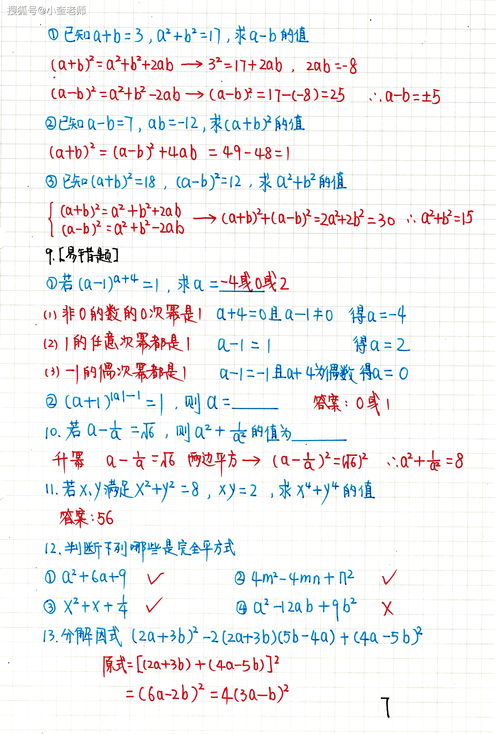 搜狐号@小蚕老师
①已知a+b=3,a²+b²=17,求a-b的值
(a+b)²=a²+b²+2ab→3²=17+2ab,2ab=-8
(a-b)²=a²+b²-2ab→(a-b)²=17-(-8)=25 ∴a-b=±5
②已知a-b=7,ab=-12,求(a+b)²的值
(a+b)²=(a-b)²+4ab=49-48=1
③已知(a+b)²=18,(a-b)²=12,求a²+b²的值
{(a+b)²=a²+b²+2ab
(a-b)²=a²+b²-2ab →(a+b)²+(a-b)²=2a²+2b²=30 ∴a²+b²=15
9.[易错题]
①若(a-1)^(a+4)=1,求a=-4或0或2
(1)非0的数的0次幂是1 a+4=0且a-1≠0 得a=-4
(2)1的任意次幂都是1 a-1=1 得a=2
(3)-1的偶次幂都是1 a-1=-1且a+4为偶数 得a=0
②(a+1)^(|a|-1)=1,则a=____ 答案:0或1
10.若a-1/a=√6,则a²+1/a²的值为____
升幂 a-1/a=√6 两边平方→(a-1/a)²=(√6)² ∴a²+1/a²=8
11.若x,y满足x²+y²=8,xy=2,求x⁴+y⁴的值
答案:56
12.判断下列哪些是完全平方式
①a²+6a+9 ✓ ②4m²-4mn+n² ✓
③x²+x+1/4 ✓ ④a²-12ab+9b² ×
13.分解因式(2a+3b)²-2(2a+3b)(5b-4a)+(4a-5b)²
原式=[(2a+3b)+(4a-5b)]²
=(6a-2b)²=4(3a-b)²
7